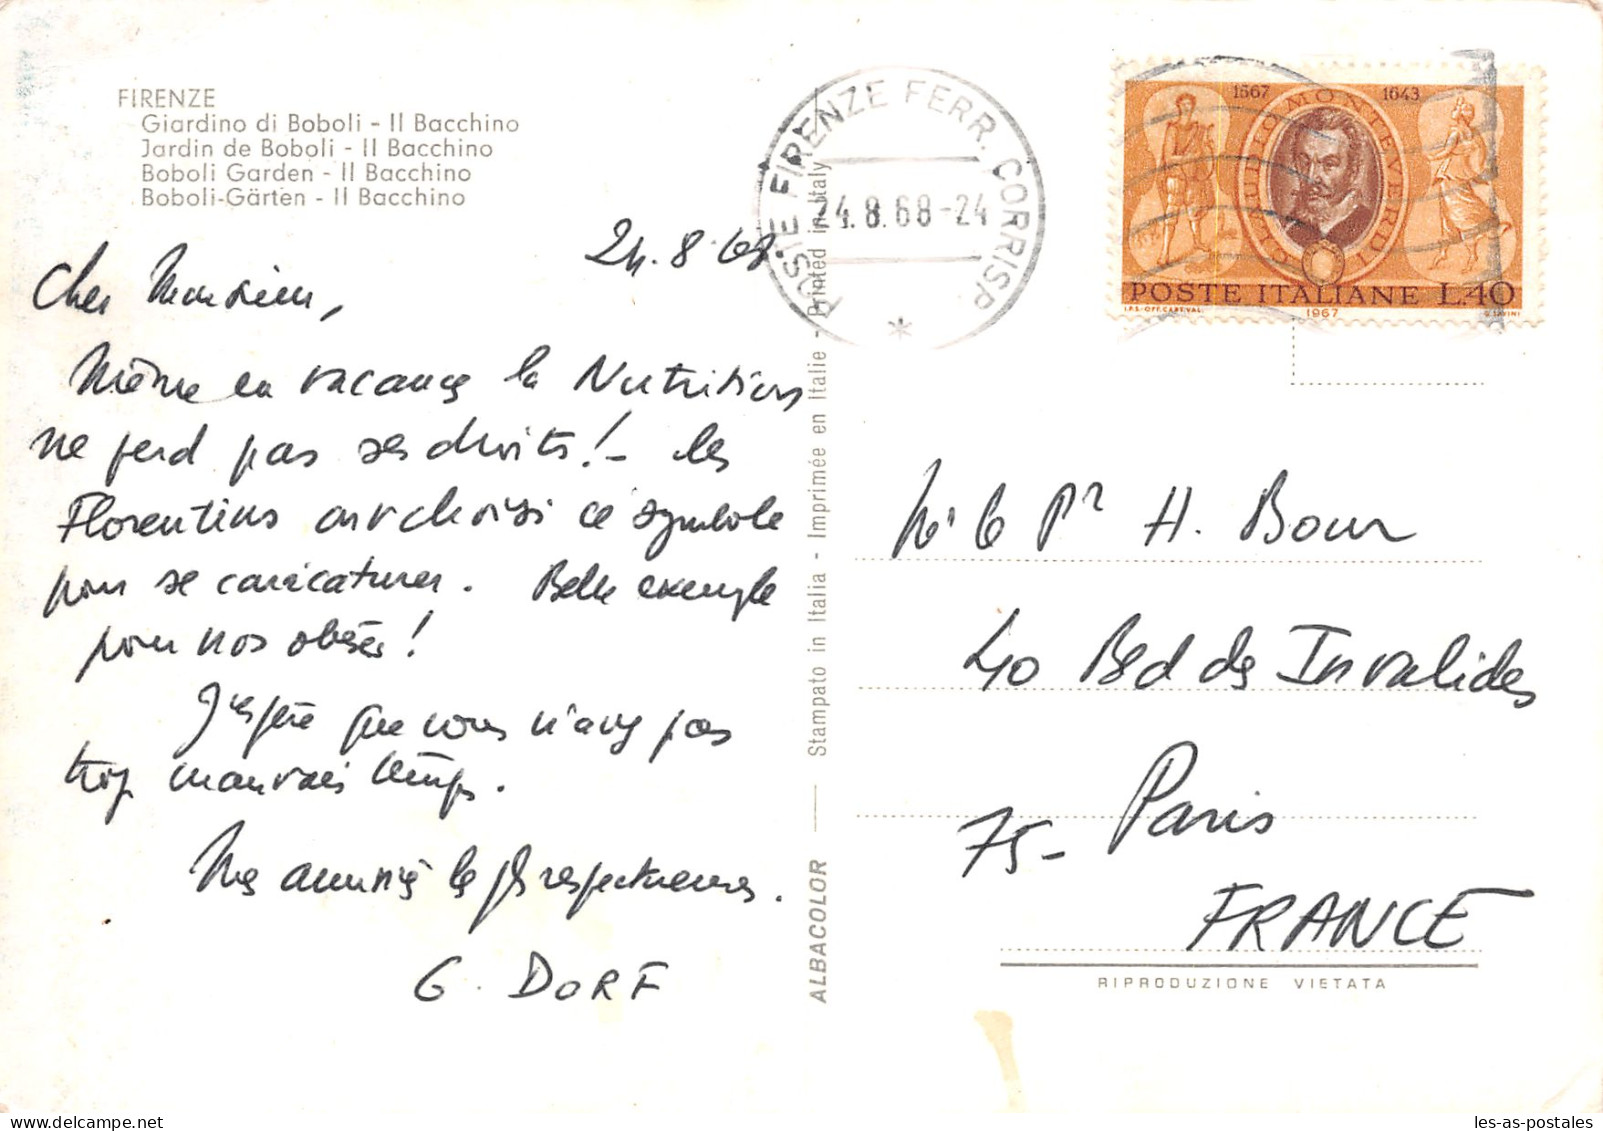 FIRENZE
Giardino di Boboli - Il Bacchino
Jardin de Boboli - Il Bacchino
Boboli Garden - Il Bacchino
Boboli-Gärten - Il Bacchino
24.8.68
Cher Monsieur,
Même en vacances la Nutrition
ne perd pas ses droits! - les
Florentins ont choisi ce symbole
pour se caricaturer. Belle exemple
pour nos obèses!
J'espère que vous n'avez pas
trop mauvais temps.
Mes amitiés les plus respectueuses.
G. DORF
POSTE FIRENZE FERR. CORRISP.
24.8.68-24
*
ALBACOLOR — Stampato in Italia - Imprimée en Italie - Printed in Italy
1567 1643
CLAUDIO MONTEVERDI
POSTE ITALIANE L.40
I.P.S.-OFF. CART. VAL. 1967
le Pr H. Bour
40 Bd des Invalides
Paris
75-
FRANCE
RIPRODUZIONE VIETATA
les-as-postales